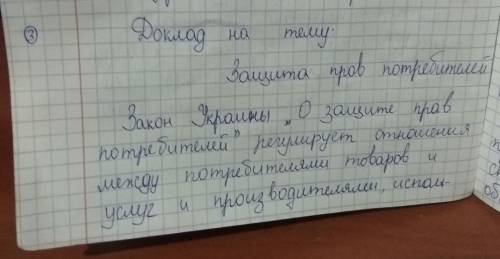 ③ Доклад на тему.
Защита прав потребителей
Закон Украины „О защите прав
потребителей" регулирует отношения
между потребителями товаров и
услуг и производителями, испол-